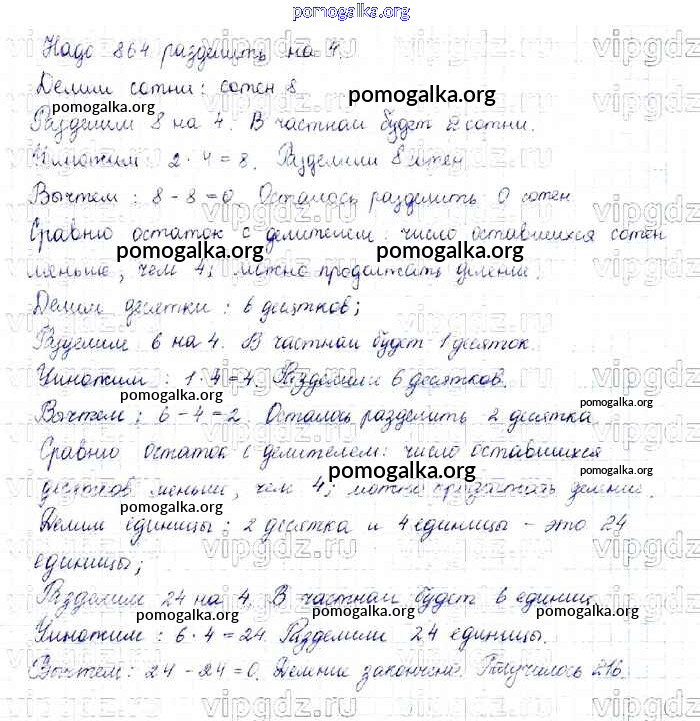 pomogalka.org
Надо 864 разделить на 4.
Делим сотни: сотен 8
Разделим 8 на 4. В частном будет 2 сотни.
Умножим 2 · 4 = 8. Разделили 8 сотен
Вычтем: 8 - 8 = 0. Осталось разделить 0 сотен
Сравню остаток с делителем: число оставшихся сотен
меньше, чем 4; можно продолжать деление.
Делим десятки: 6 десятков;
Разделим 6 на 4. В частном будет 1 десяток.
Умножим: 1 · 4 = 4. Разделили 6 десятков.
Вычтем: 6 - 4 = 2. Осталось разделить 2 десятка.
Сравню остаток с делителем: число оставшихся
десятков меньше, чем 4; можно продолжать деление.
Делим единицы: 2 десятка и 4 единицы - это 24
единицы;
Разделим 24 на 4. В частном будет 6 единиц
Умножим: 6 · 4 = 24. Разделили 24 единицы.
Вычтем: 24 - 24 = 0. Деление закончено. Получилось 216.